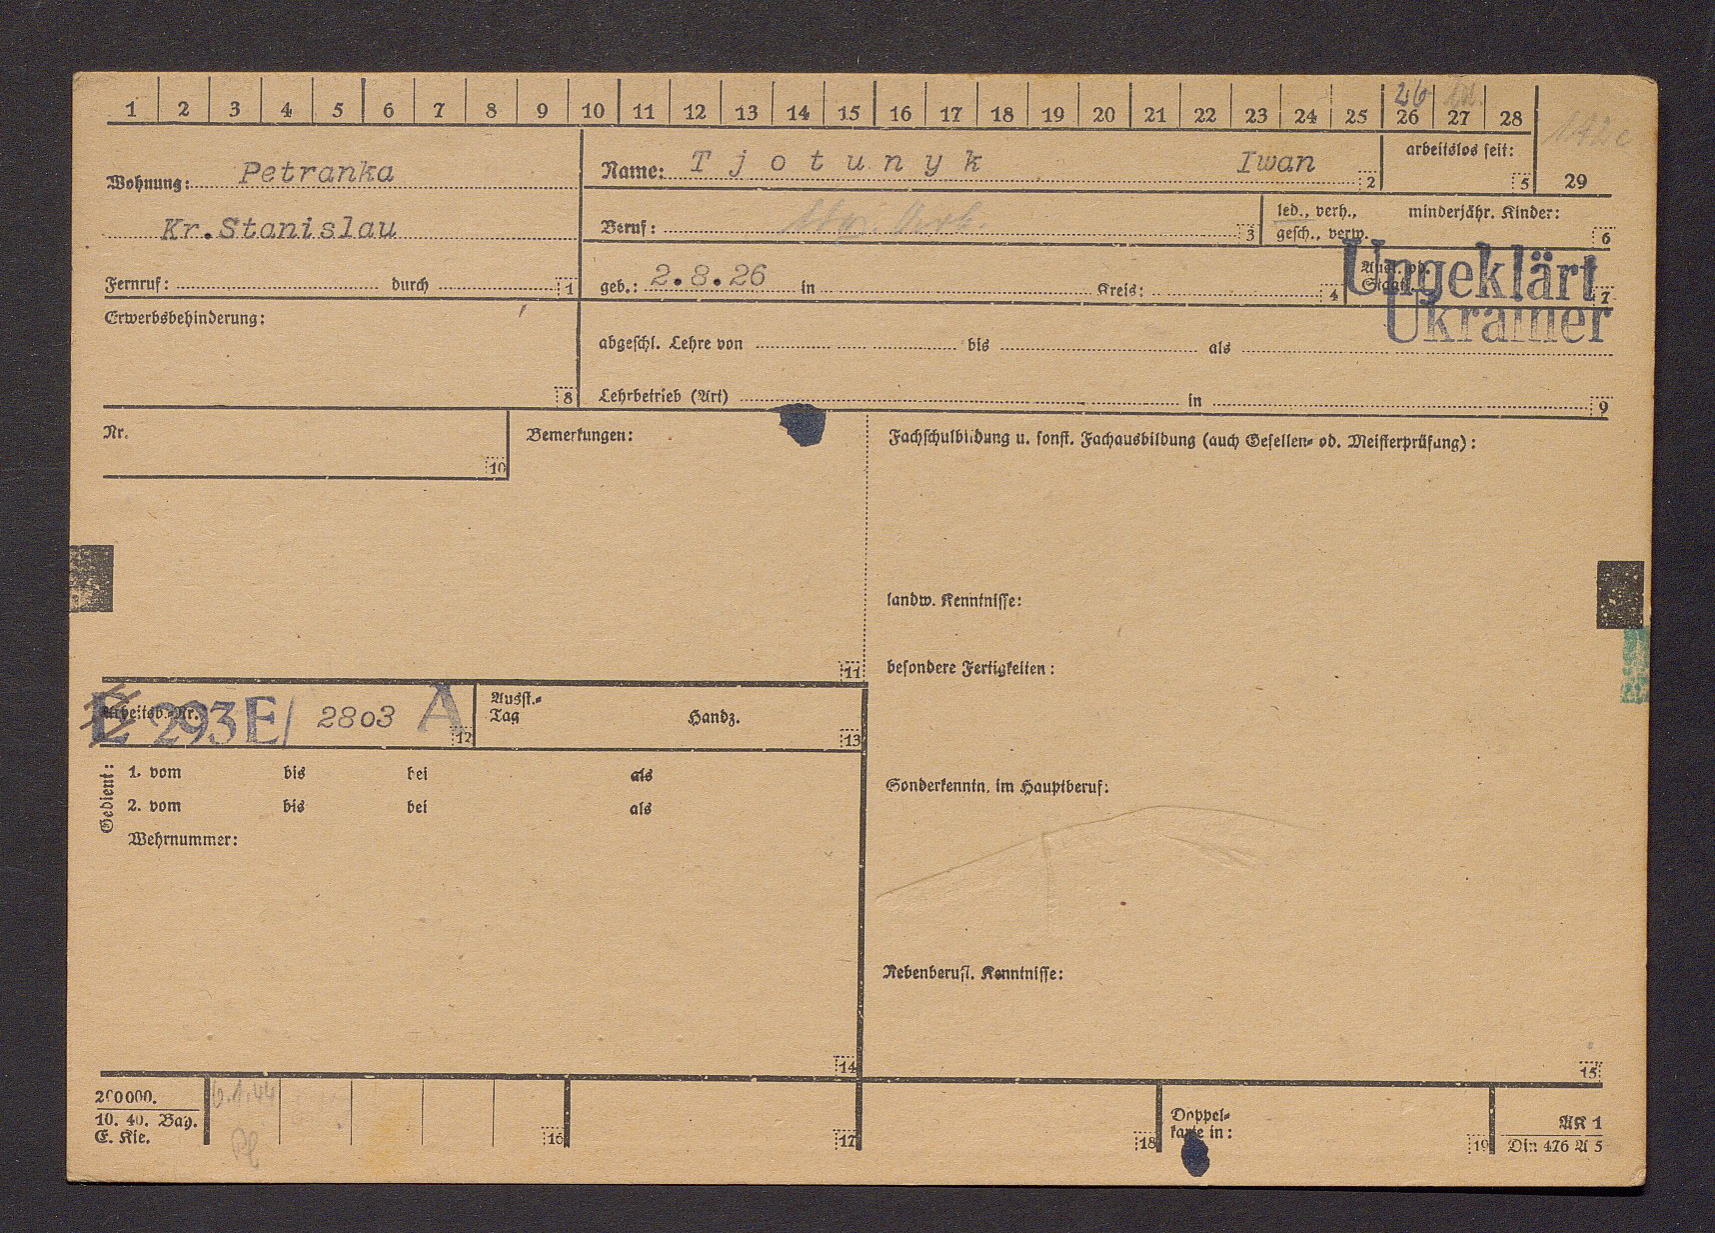 1 2 3 4 5 6 7 8 9 10 11 12 13 14 15 16 17 18 19 20 21 22 23 24 25 26 27 28
26
Wohnung: Petranka
Name: Tjotunyk Iwan 2
arbeitslos seit: 5
29
Kr.Stanislau
Beruf: 3
led., verh., gesch., verw.
minderjähr. Kinder: 6
Fernruf: durch 1
geb.: 2.8.26 in Kreis: 4
Ungeklärt 7
Ukrainer
Erwerbsbehinderung: 8
abgeschl. Lehre von bis als
Lehrbetrieb (Art) in 9
Nr. 10
Bemerkungen: 11
Fachschulbildung u. sonst. Fachausbildung (auch Gesellen- od. Meisterprüfung):
landw. Kenntnisse:
besondere Fertigkeiten:
Arbeitsb.-Nr. E 293E/ 2803 A 12
Ausst.-Tag Handz. 13
Gedient:
1. vom bis bei als
2. vom bis bei als
Wehrnummer: 14
Sonderkenntn. im Hauptberuf:
Nebenberufl. Kenntnisse: 15
200000.
10. 40. Bay.
E. Kie.
6.1.44
16 17 18
Doppel-
karte in: 19
AK 1
Din 476 A 5